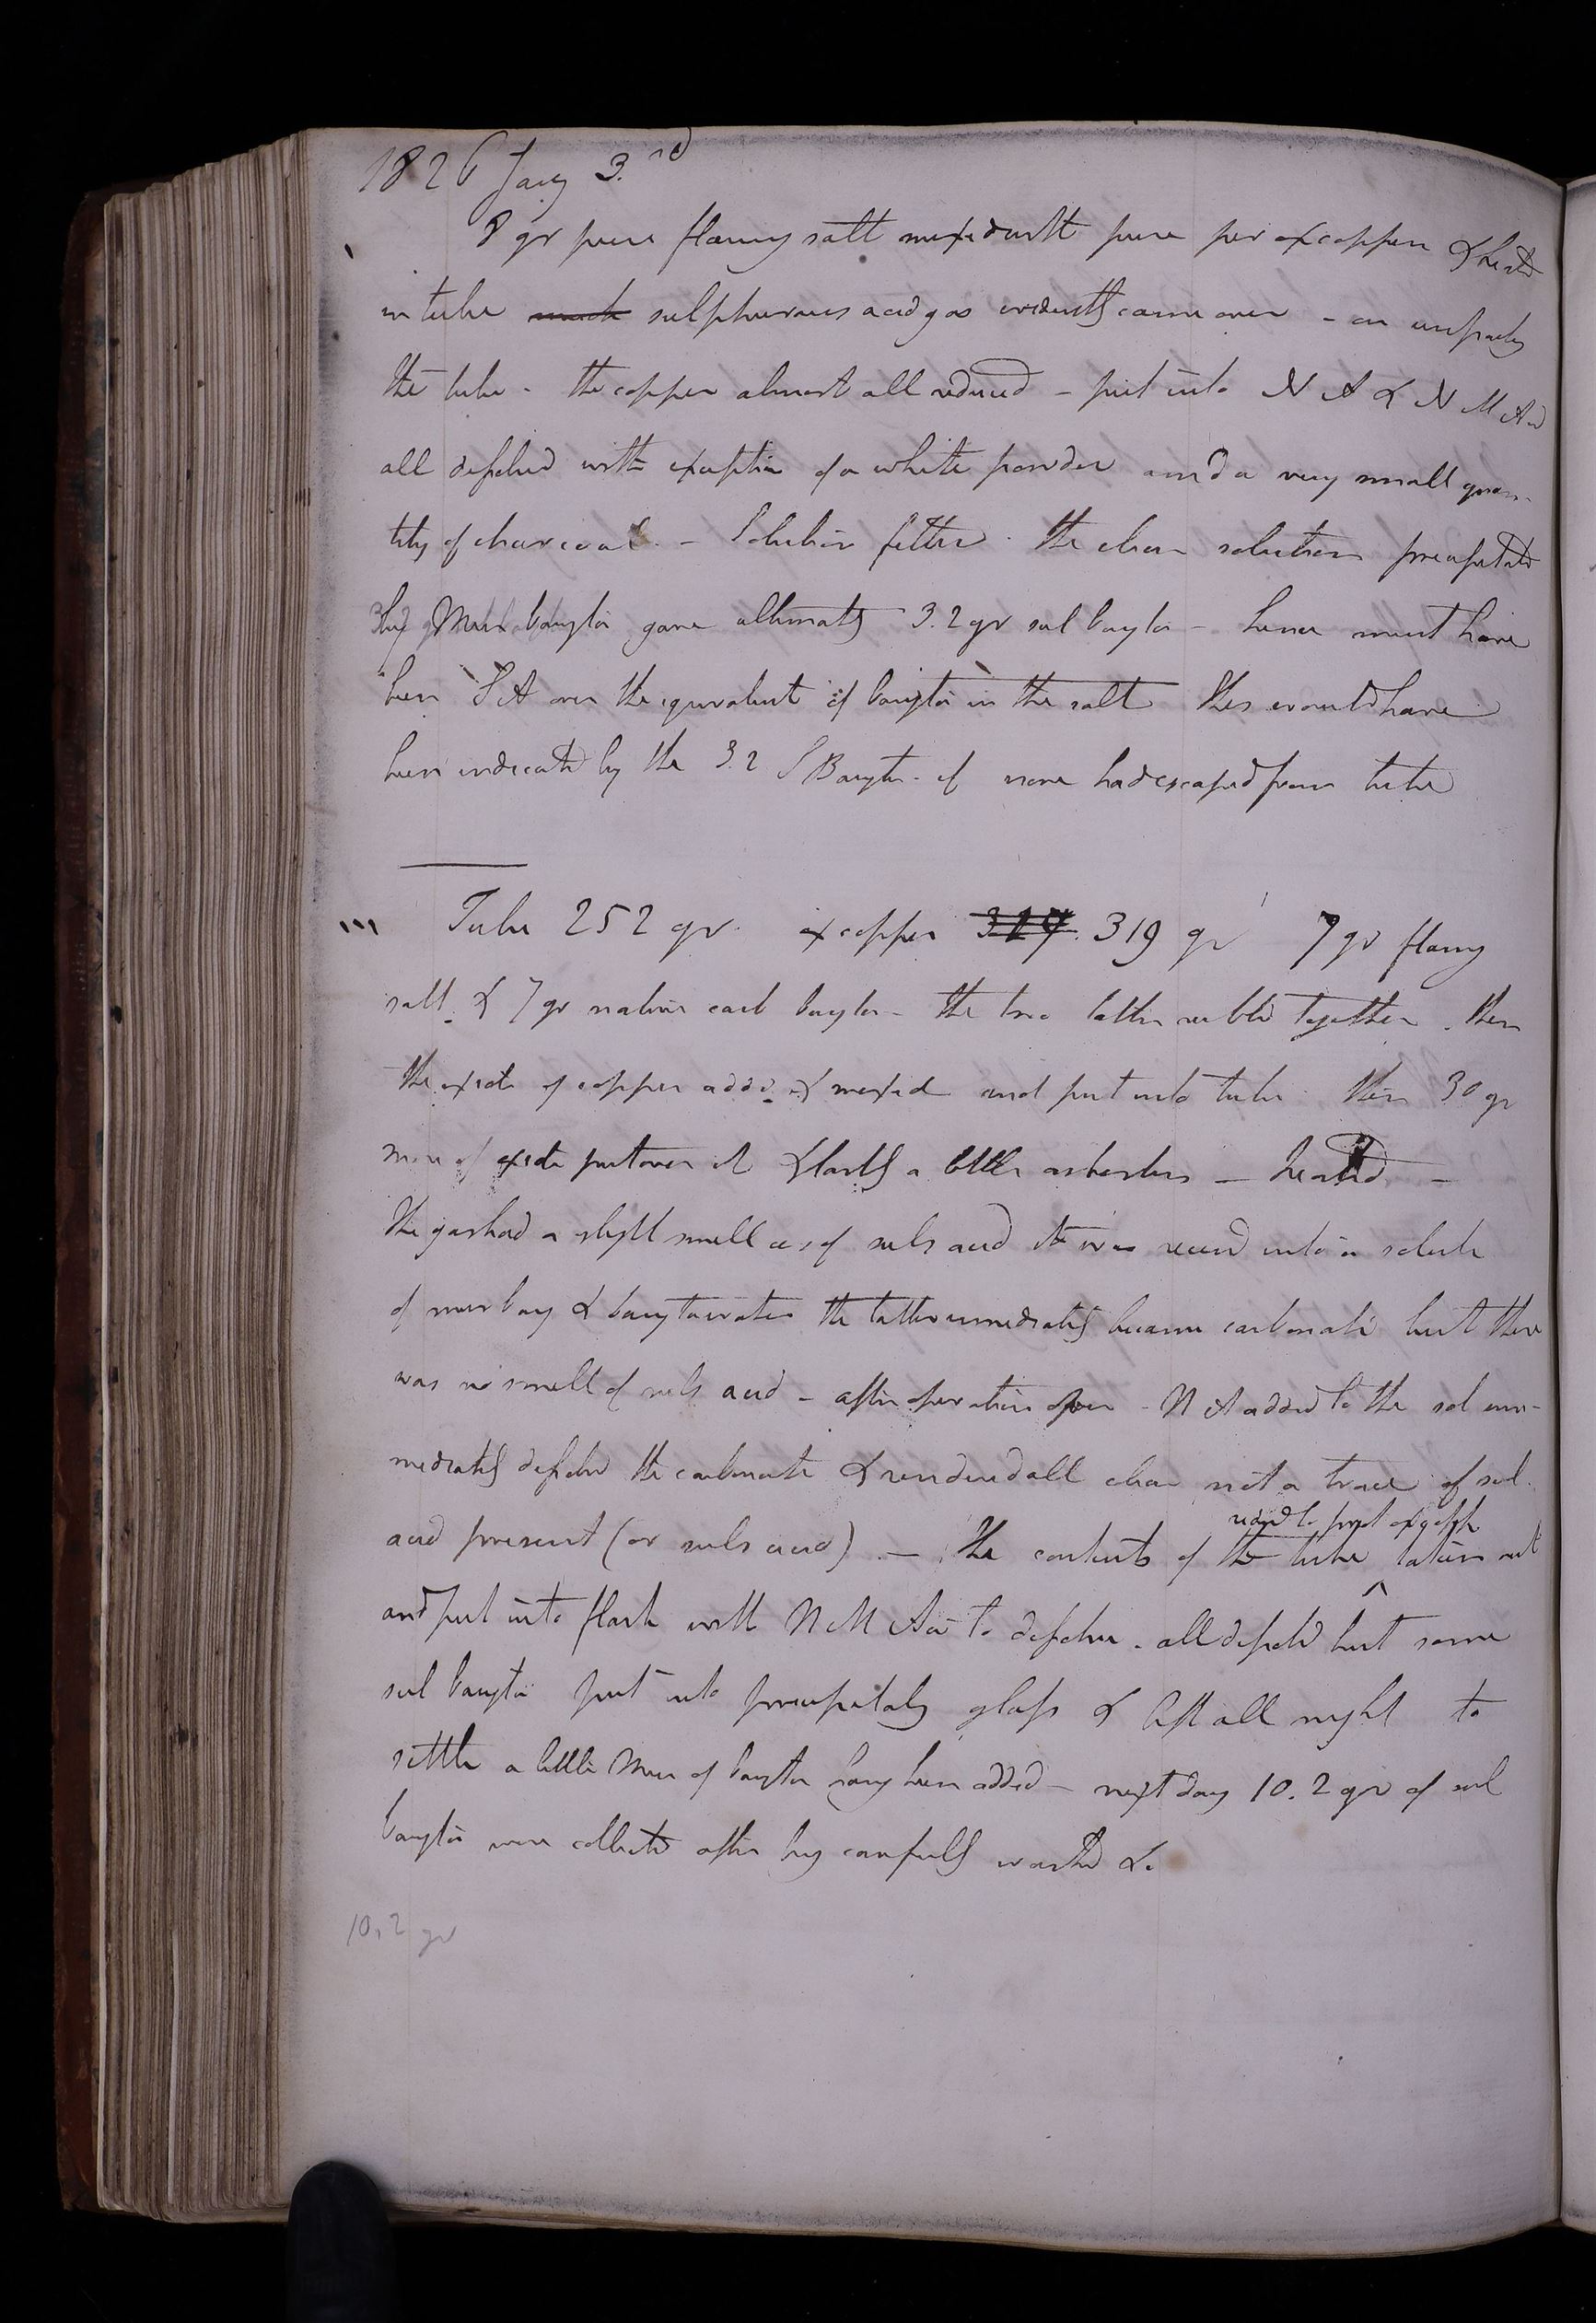 1826 Jany 3.rd
8 gr pure flaming salt mixed with pure per ox copper & heated
in tube much sulphurous acid gas evidently came over - on unpacking
the tube - the copper almost all reduced - put into N A & N M Acid
all dissolved with exception of a white powder and a very small quan-
tity of charcoal. - Solution filtered. the clear solution precipitated
by Mur baryta gave ultimately 3.2 gr sul baryta - hence must have
been S A over the equivalent of baryta in the salt this would have
been indicated by the 3.2 S Baryta - if none had escaped from tube
Tube 252 gr. ox copper 317. 319 gr 7 gr flaming
salt. & 7 gr native carb baryta - the two latter rubbed together. then
the oxide of copper added & mixed and put into tube then 30 gr
more of oxide put over it & lastly a little asbestus - heated -
The gas had a slight smell as of sul acid it was received into a solute
of mur bary & baryta water the latter immediately became carbonate but there
was no smell of sul acid - after operation over - N A added to the sol im-
mediately dissolved the carbonate & rendered all clear not a trace of sul.
acid present (or suls acid) - The contents of the tube taken out
and put into flask with N M Acid to dissolve. all dissolved but some
sul baryta put into precipitating glass & left all night to
settle a little Mur of baryta having been added - next day 10.2 gr of sul
baryta were collected after being carefully washed &c
10.2 gr